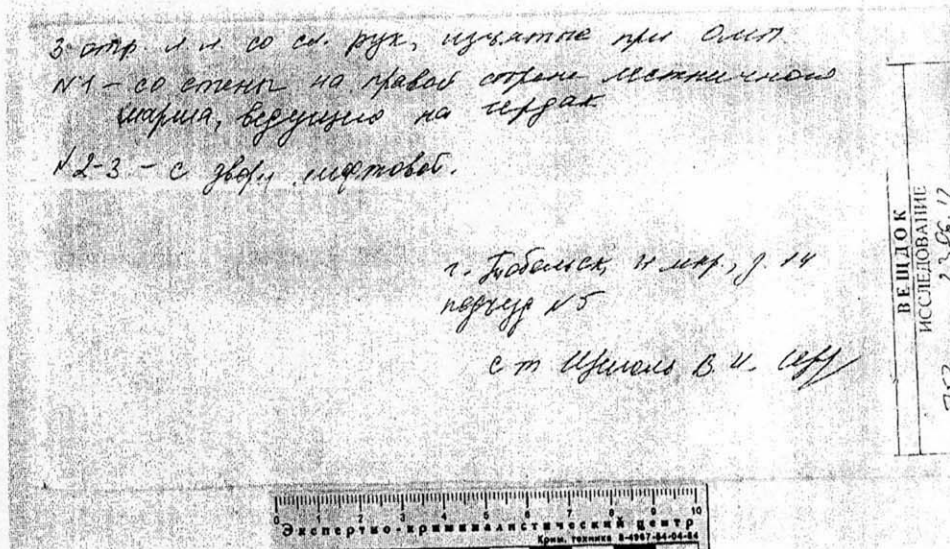 3 отр. л л со сл. рук, изъятые при ОМП
№1 - со стены на правой стороне лестничного
марша, ведущего на чердак
№2-3 - с двери лифтовой.
г. Тобольск, мкр., д. 14
подъезд №5
с т В. И.
ВЕЩДОК
ИССЛЕДОВАНИЕ
0 1 2 3 4 5 6 7 8 9 10
Экспертно-криминалистический центр
Крим. техника 8-4967-54-04-64